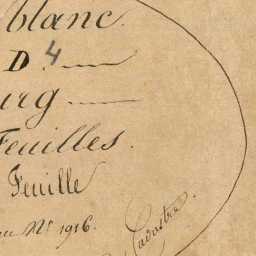 blanc.
D. 4
urg
Feuilles.
Feuille
au Nº 1916.
Cadastre